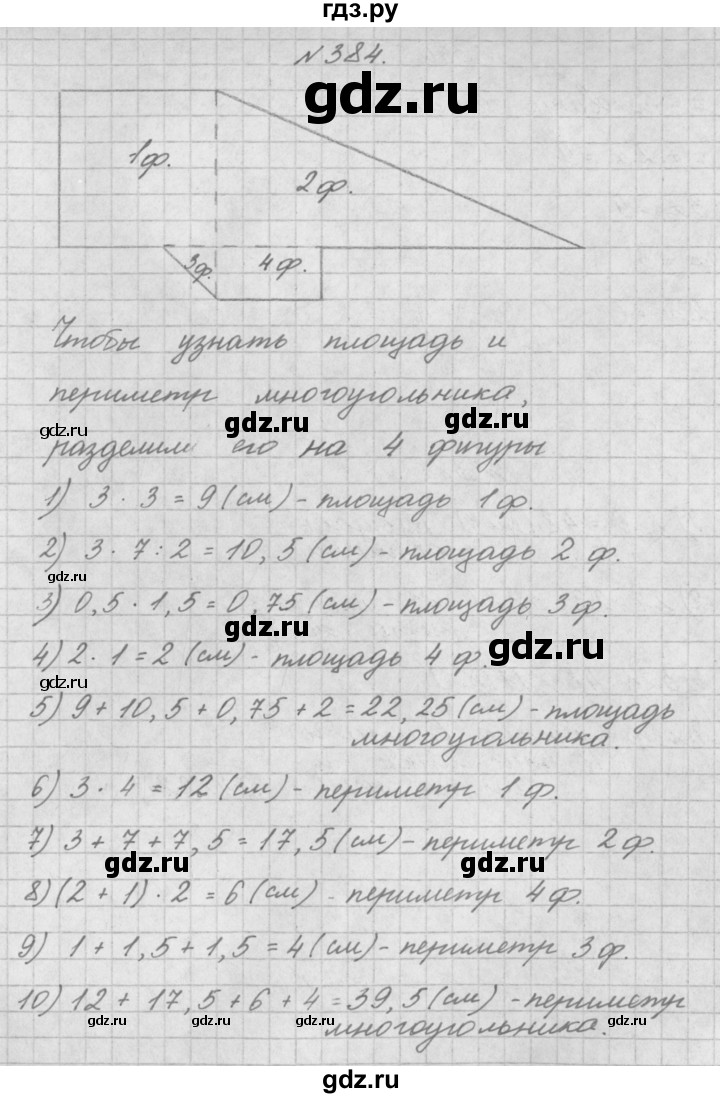 гдз.ру
№384.
gdz.ru
1ф.
2ф.
3ф.
4ф.
Чтобы узнать площадь и
периметр многоугольника,
gdz.ru
gdz.ru
gdz.ru
разделим его на 4 фигуры
1) 3 · 3 = 9 (см) - площадь 1ф.
2) 3 · 7 : 2 = 10,5 (см) - площадь 2 ф.
gdz.ru
3) 0,5 · 1,5 = 0,75 (см) - площадь 3ф.
gdz.ru
gdz.ru
4) 2 · 1 = 2 (см) - площадь 4 ф.
gdz.ru
5) 9 + 10,5 + 0,75 + 2 = 22,25 (см) - площадь
многоугольника.
6) 3 · 4 = 12 (см) - периметр 1 ф.
7) 3 + 7 + 7,5 = 17,5 (см) - периметр 2ф.
gdz.ru
gdz.ru
8) (2 + 1) · 2 = 6 (см) - периметр 4ф.
9) 1 + 1,5 + 1,5 = 4 (см) - периметр 3ф.
10) 12 + 17,5 + 6 + 4 = 39,5 (см) - периметр
gdz.ru
gdz.ru
gdz.ru
gdz.ru
gdz.ru
многоугольника.
gdz.ru